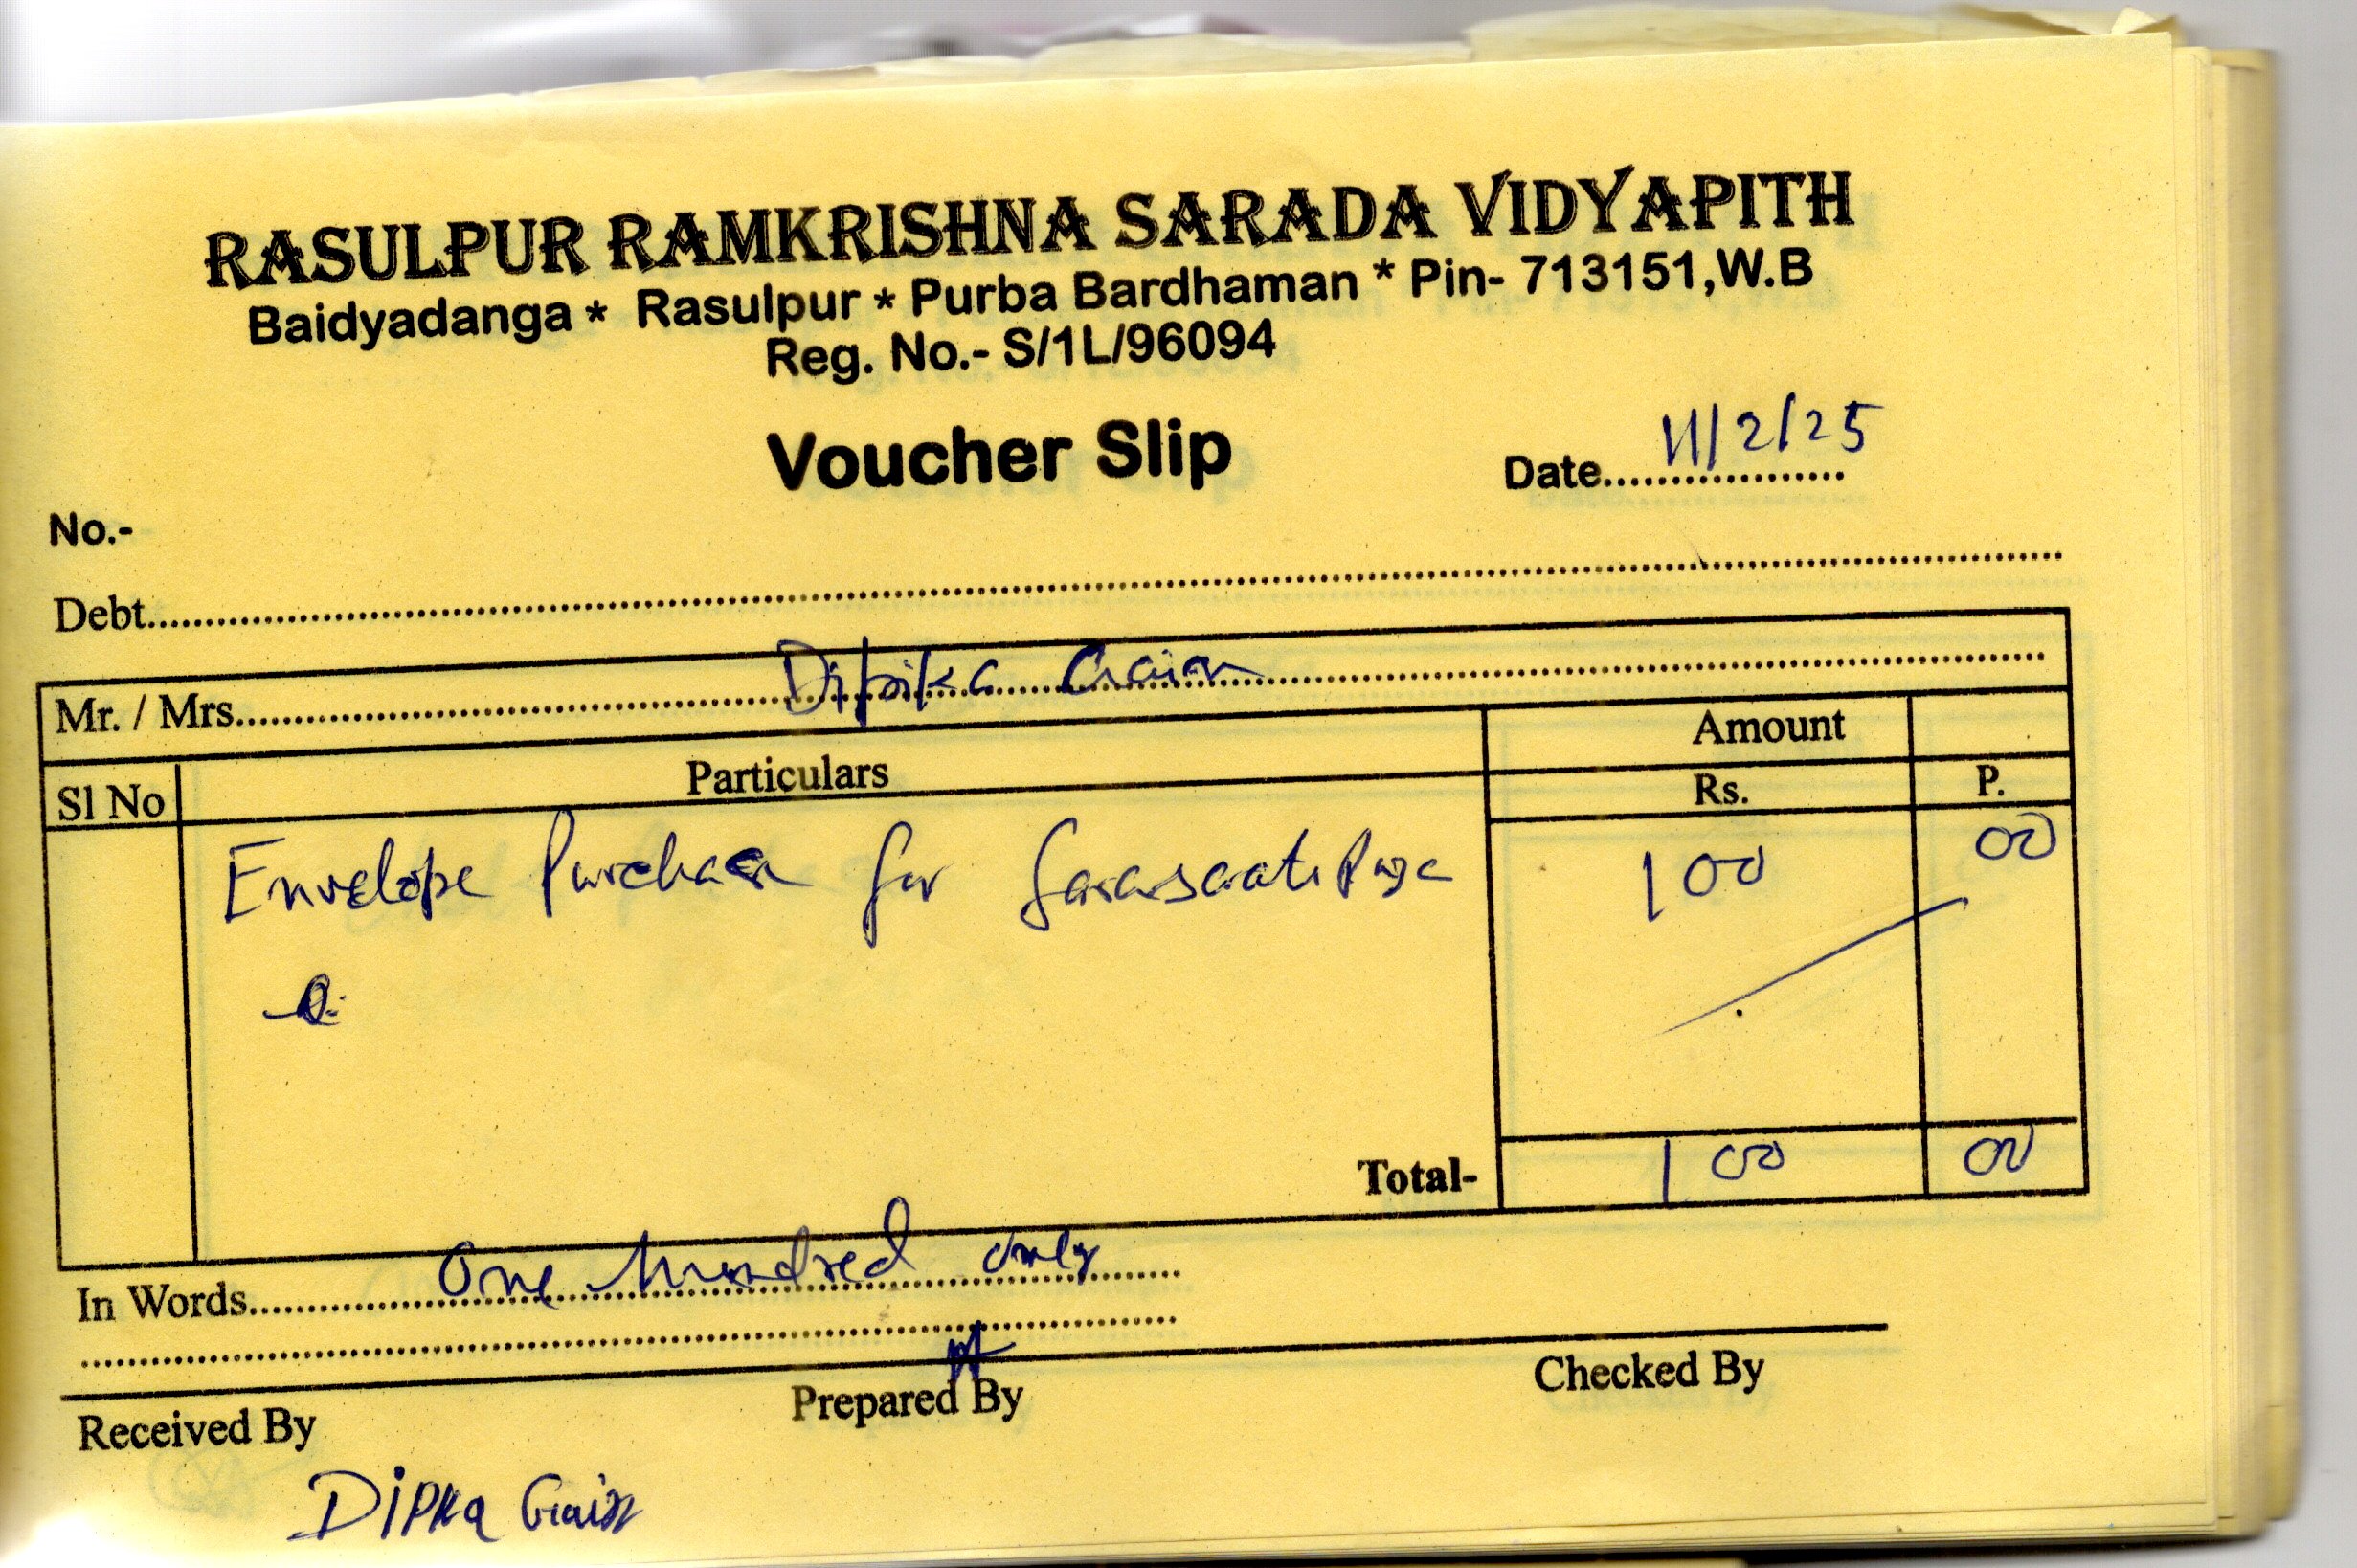 RASULPUR RAMKRISHNA SARADA VIDYAPITH
Baidyadanga * Rasulpur * Purba Bardhaman * Pin- 713151,W.B
Reg. No.- S/1L/96094
Voucher Slip
Date 11/2/25
No.-
Debt
Mr. / Mrs. Dipika Gain
Sl No Particulars Amount
Rs. P.
Envelope Purchase for Saraswati Puja 100 00
Total- 100 00
In Words One hundred only
Received By Prepared By Checked By
Dipka Gain